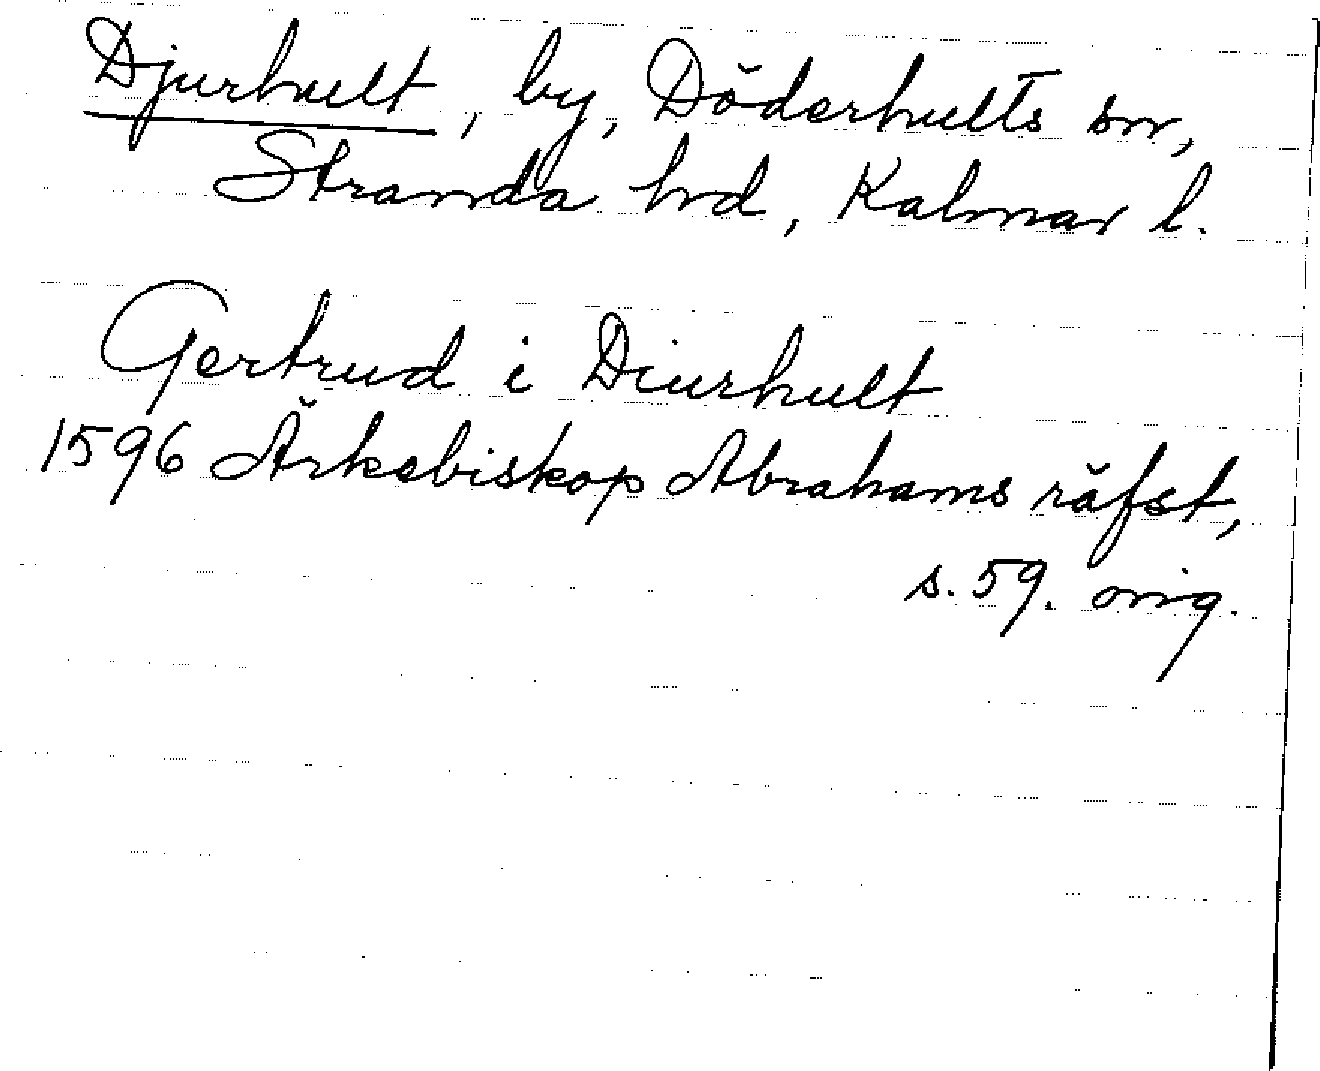 Djurhult, by, Döderhults sn,
Stranda hd, Kalmar l.
Gertrud i Diurhult
1596 Ärkebiskop Abrahams räfst,
s. 59. orig.